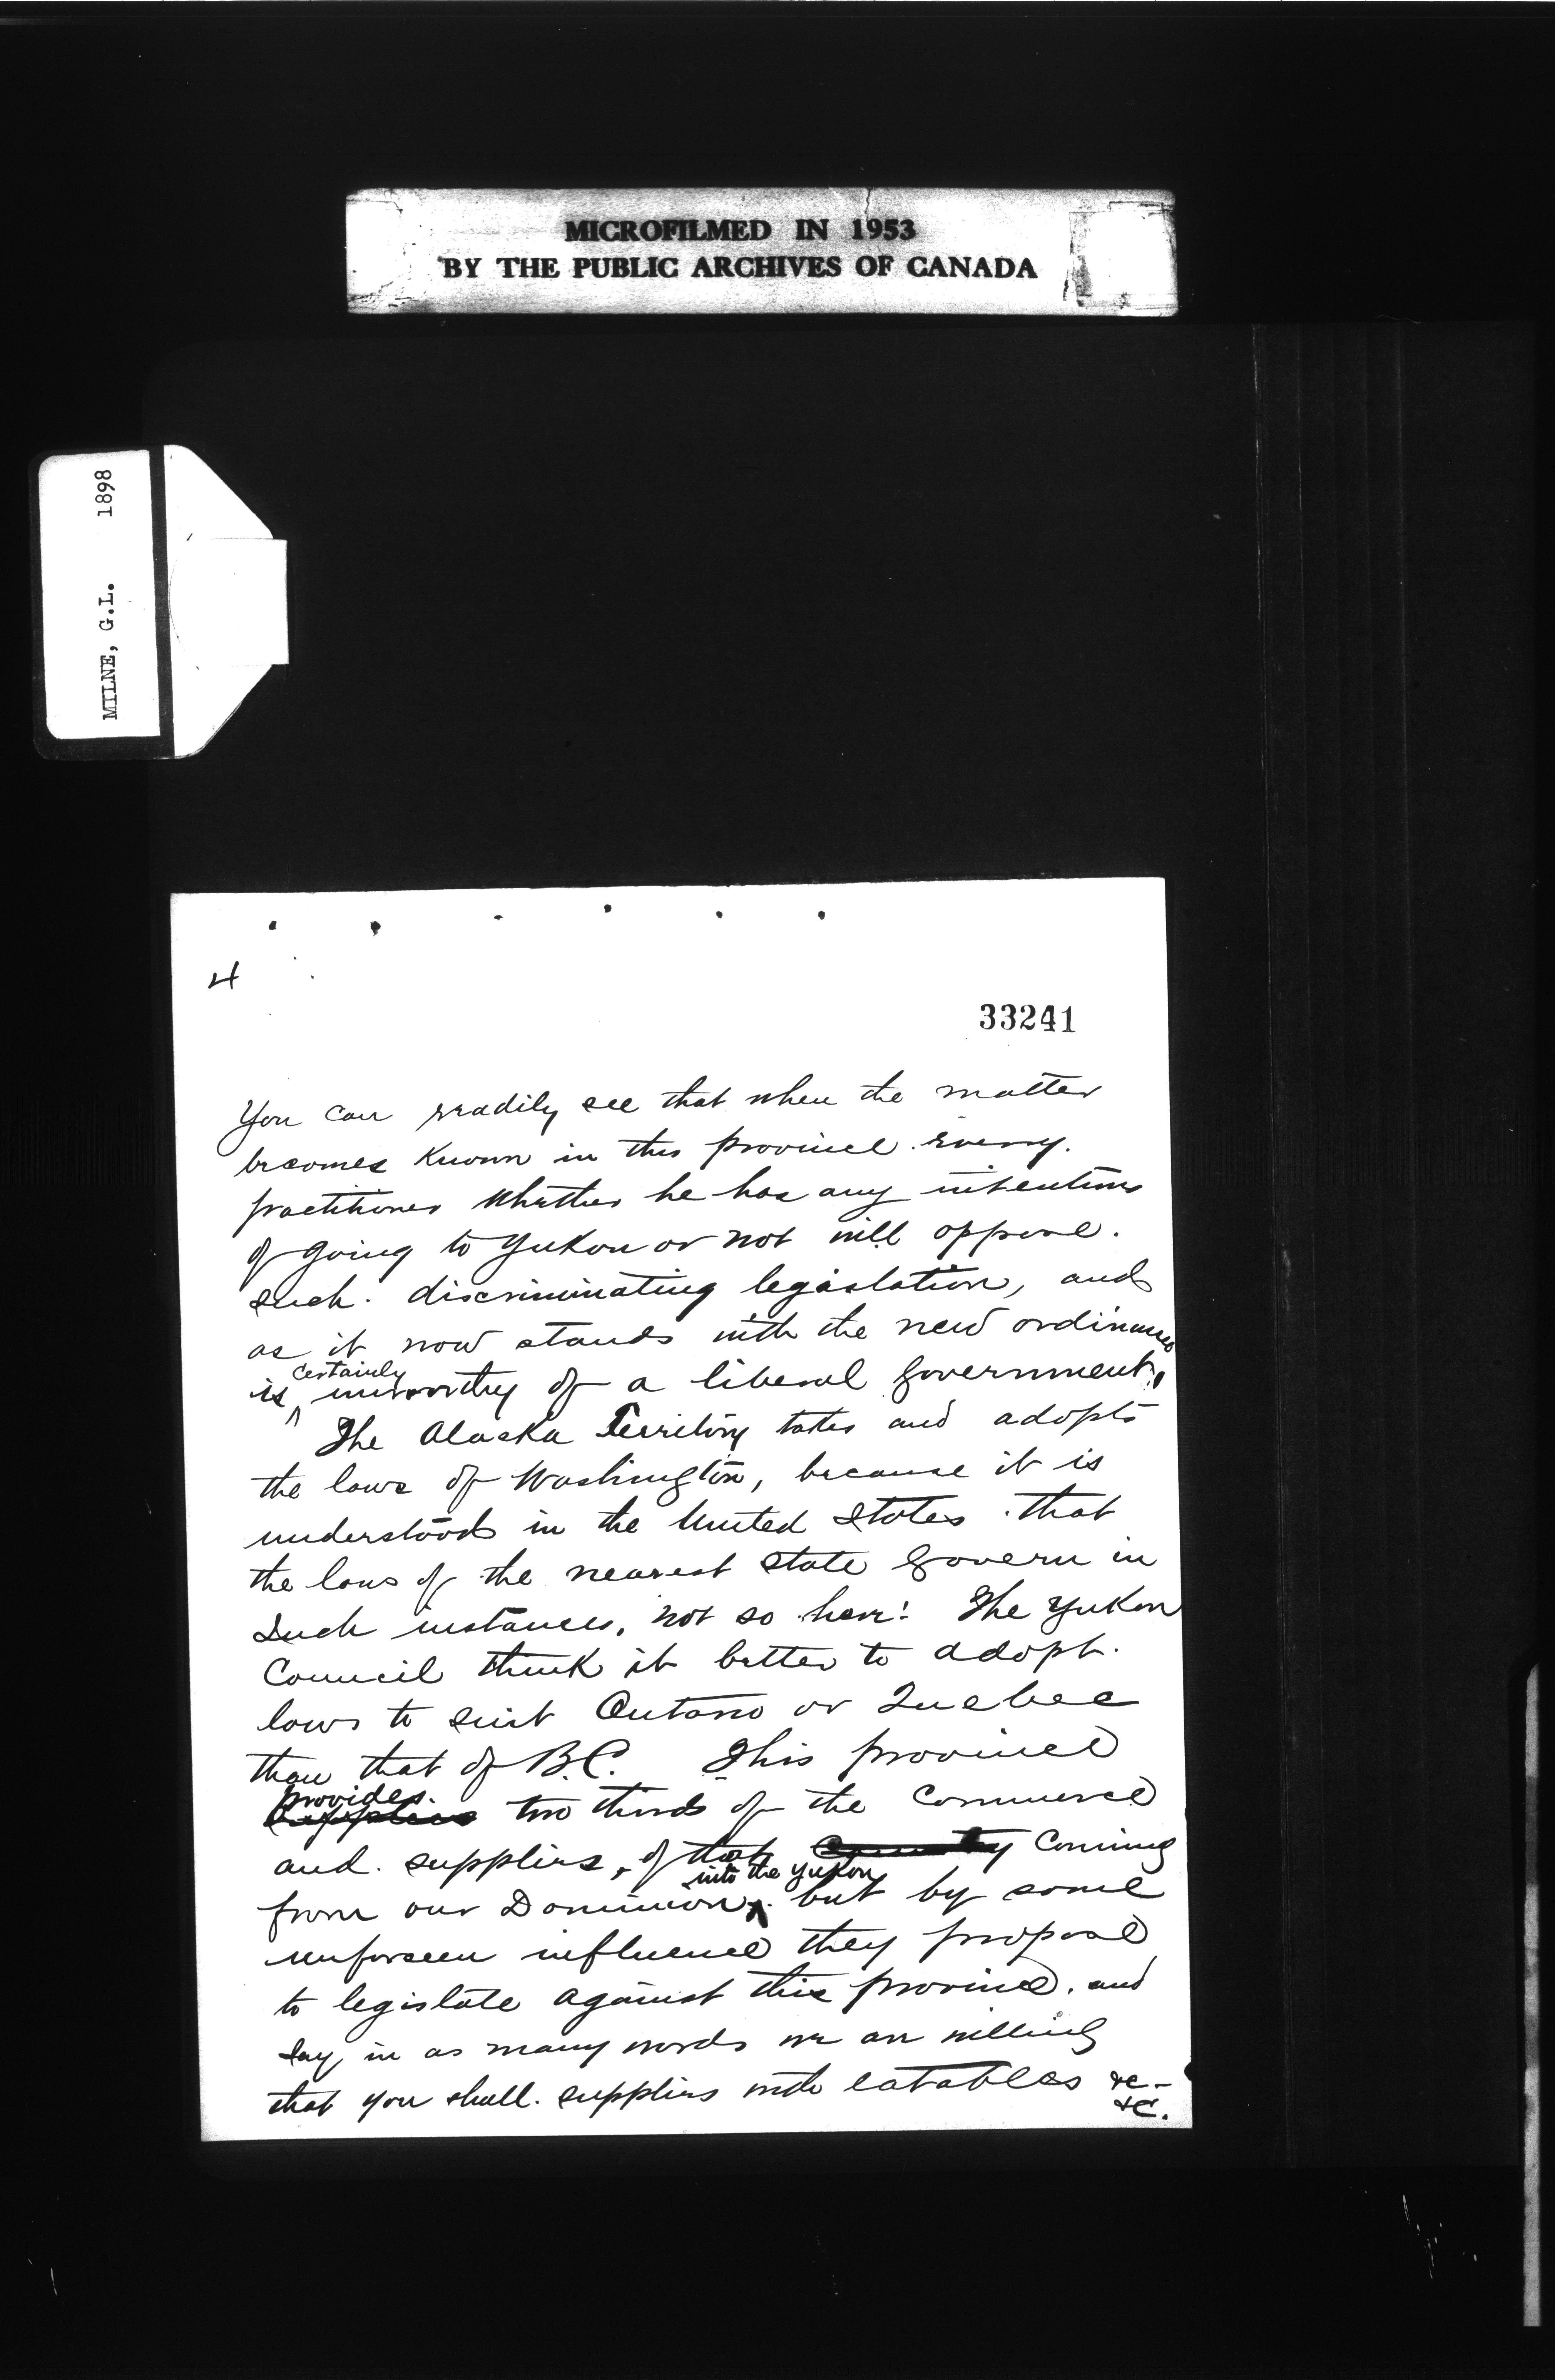 MICROFILMED IN 1953
BY THE PUBLIC ARCHIVES OF CANADA
MILNE, G.L. 1898
4
33241
You can readily see that when the matter
becomes known in this province every
practitioner whether he has any intentions
of going to Yukon or not will oppose.
such. discriminating legislation, and
as it now stands with the new ordinance
is certainly unworthy of a liberal government.
The Alaska Territory takes and adopts
the laws of Washington, because it is
understood in the United States that
the laws of the nearest state govern in
such instances, not so here! The Yukon
Council think it better to adopt.
laws to suit Ontario or Quebec
than that of B.C. This province
provides. Supplies two thirds of the Commerce
and. supplies, of that Country Coming
from our Dominion into the Yukon but by some
unforseen influence they propose
to legislate against this province. and
say in as many words we are willing
that you shall. supplies with eatables &c-
&c.